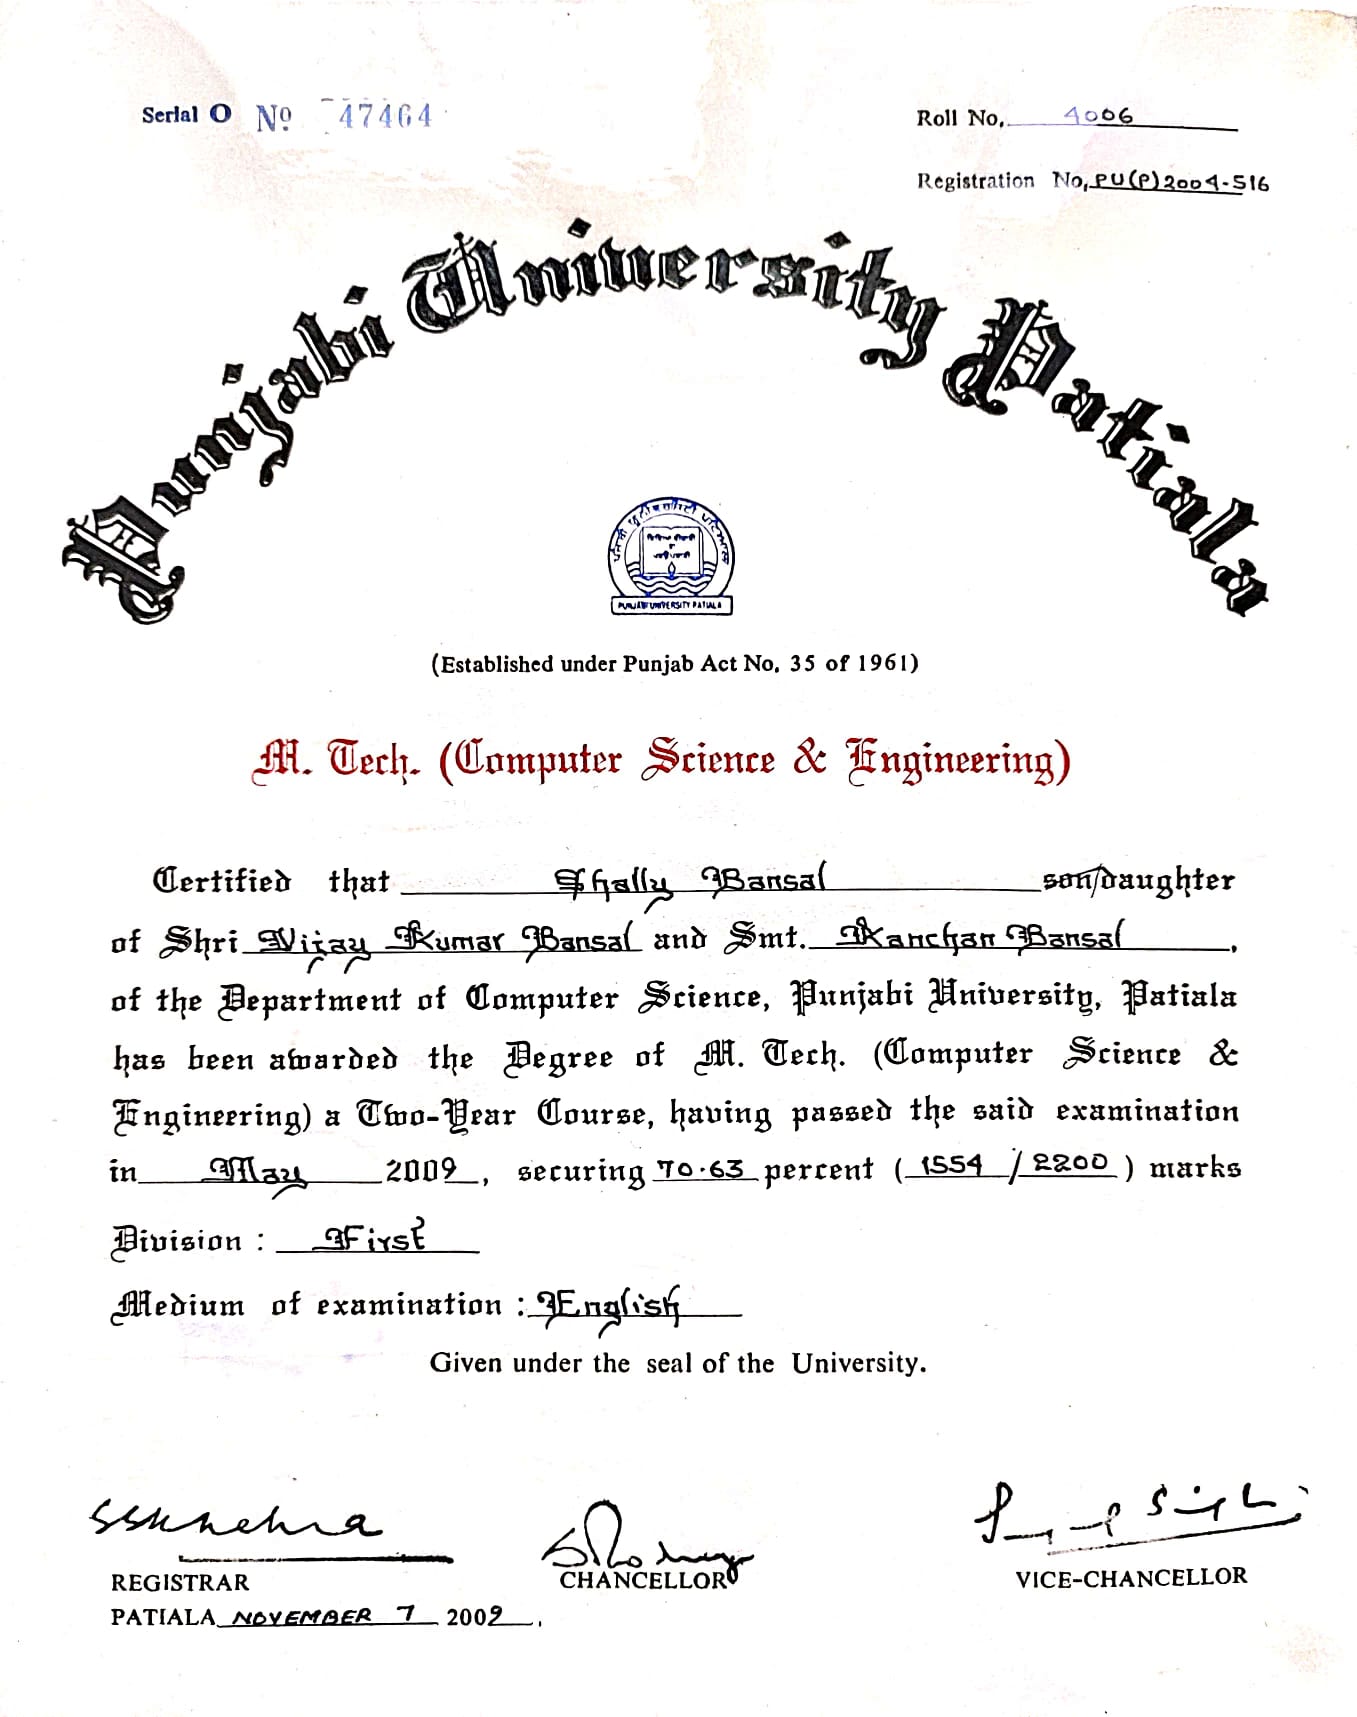 Serial O No 47464
Roll No. 4006
Registration No. PU(P)2004-516
Punjabi University Patiala
ਪੰਜਾਬੀ ਯੂਨੀਵਰਸਿਟੀ ਪਟਿਆਲਾ
PUNJABI UNIVERSITY PATIALA
(Established under Punjab Act No. 35 of 1961)
M. Tech. (Computer Science & Engineering)
Certified that Shally Bansal son/daughter
of Shri Vijay Kumar Bansal and Smt. Kanchan Bansal,
of the Department of Computer Science, Punjabi University, Patiala
has been awarded the Degree of M. Tech. (Computer Science &
Engineering) a Two-Year Course, having passed the said examination
in May 2009, securing 70.63 percent (1554/2200) marks
Division : First
Medium of examination : English
Given under the seal of the University.
REGISTRAR
CHANCELLOR
VICE-CHANCELLOR
PATIALA NOVEMBER 7 2009.